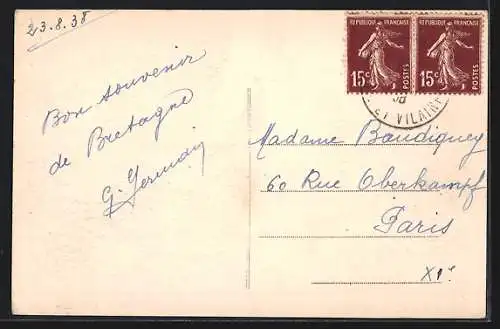 23.8.38
Bon souvenir
de Bretagne
G. Germain
REPUBLIQUE FRANÇAISE
15c POSTES
REPUBLIQUE FRANÇAISE
15c POSTES
38
ET VILAINE
Madame Baudiquey
60 Rue Oberkampf
Paris
XIe